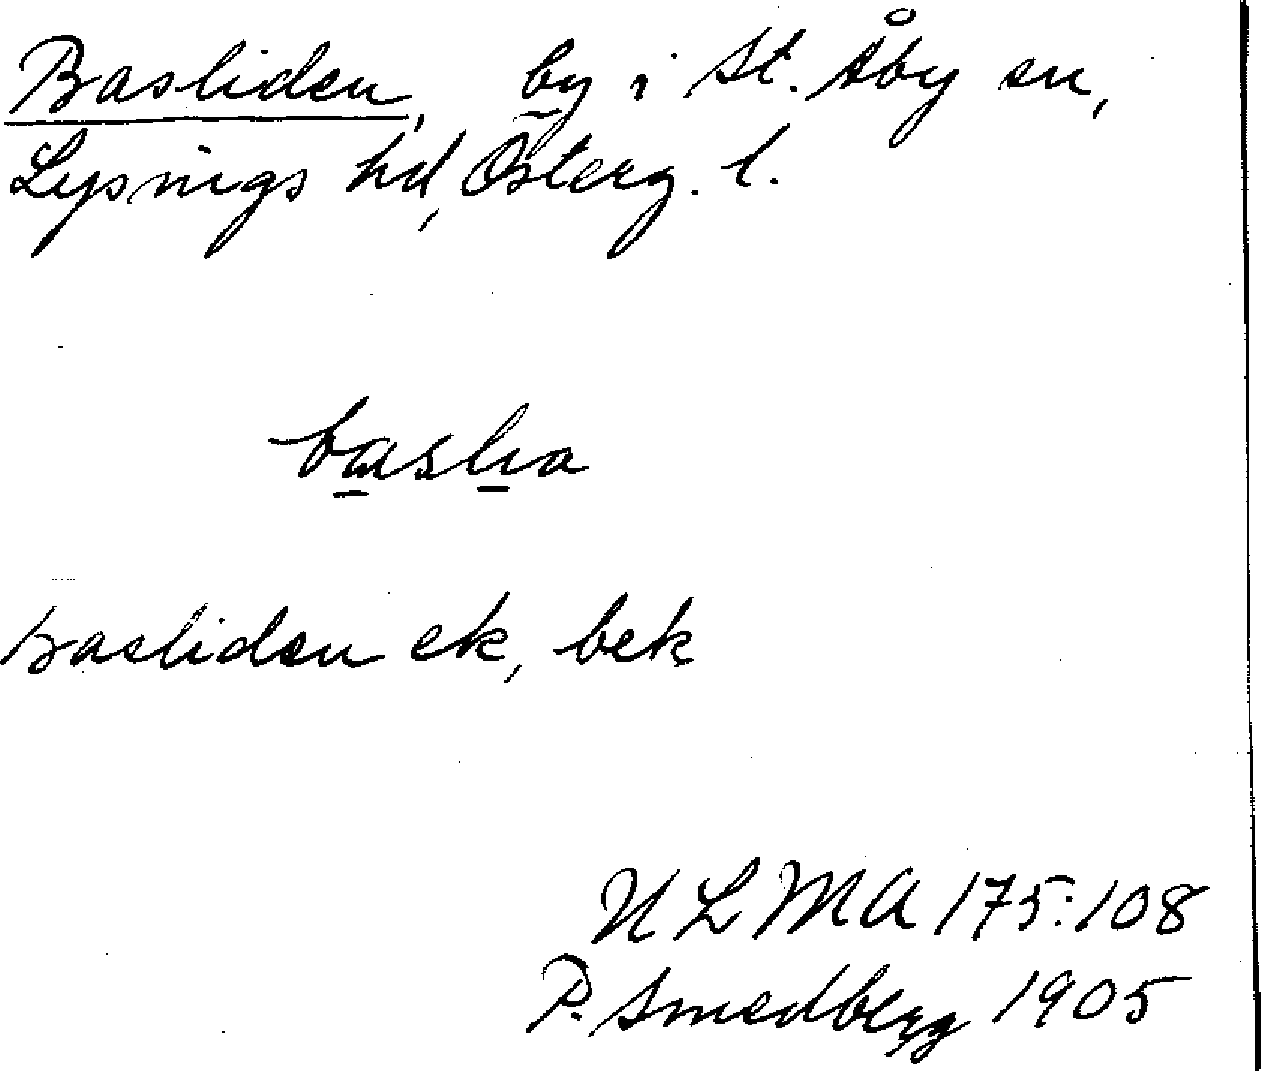 Basliden, by i St. Åby sn,
Lysings hd, Österg. l.
baslia
Basliden ek, bek
ULMA 175:108
P. Smedberg 1905